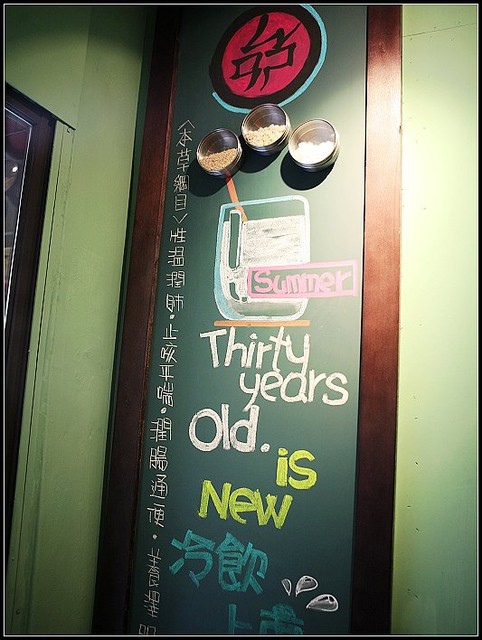 Summer
Thirty
years
Old.
is
New
冷飲
上市
〈本草綱目〉性溫潤肺·止咳平喘·潤腸通便·